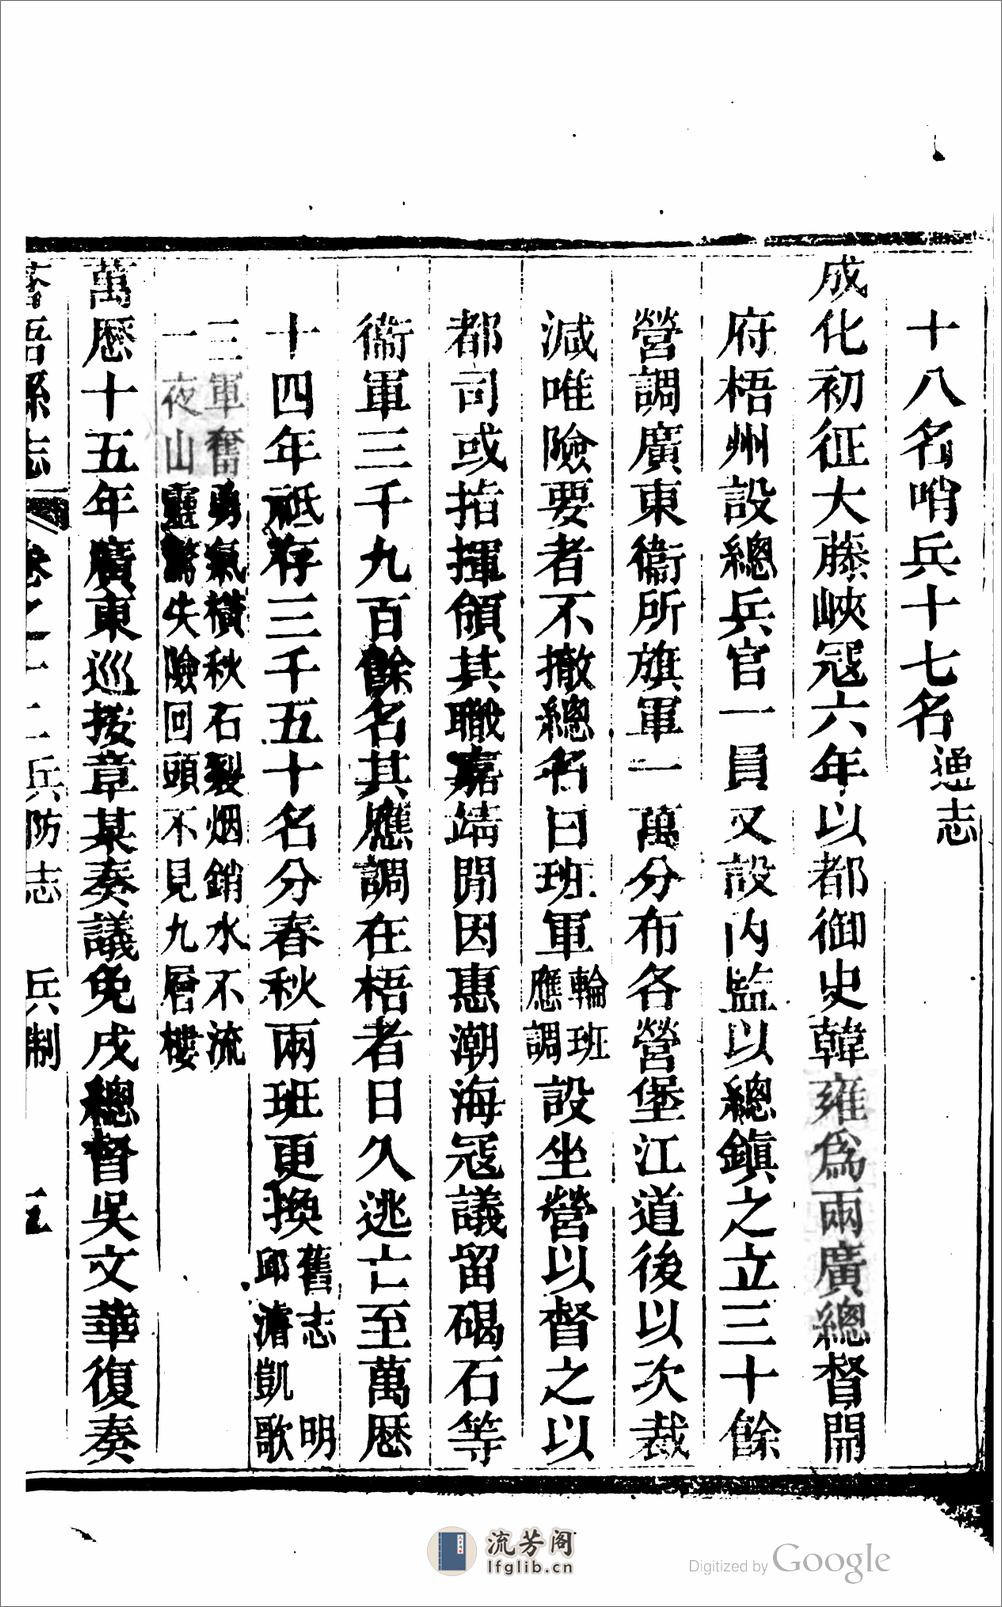 十八名哨兵十七名通志
成化初征大藤峽冦六年以都御史韓雍爲兩廣總督開
府梧州設總兵官一員又設内監以總鎮之立三十餘
營調廣東衞所旗軍一萬分布各營堡江道後以次裁
減唯險要者不撤總名曰班軍輪班應調設坐營以督之以
都司或指揮領其職嘉靖間因惠潮海冦議留碣石等
衞軍三千九百餘名其應調在梧者日久逃亡至萬厯
十四年祗存三千五十名分春秋兩班更換舊志 明邱濬凱歌
三軍奮勇氣橫秋石裂烟銷水不流
一夜山靈驚失險回頭不見九層樓
萬厯十五年廣東巡按章某奏議免戍總督吳文華復奏
蒼梧縣志 卷之十二兵防志 兵制 五
流芳阁
lfglib.cn
Digitized by Google